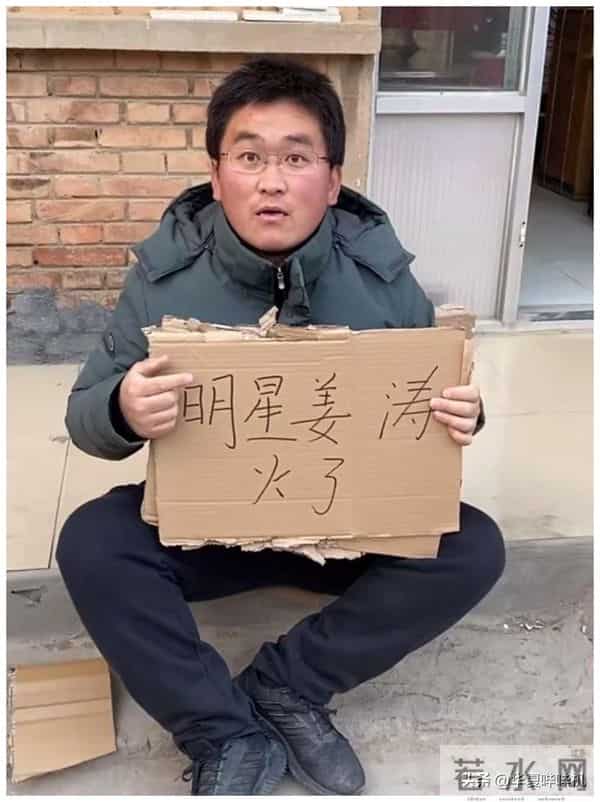 明星姜涛
火了
头条@华夏哔哔机
若水网